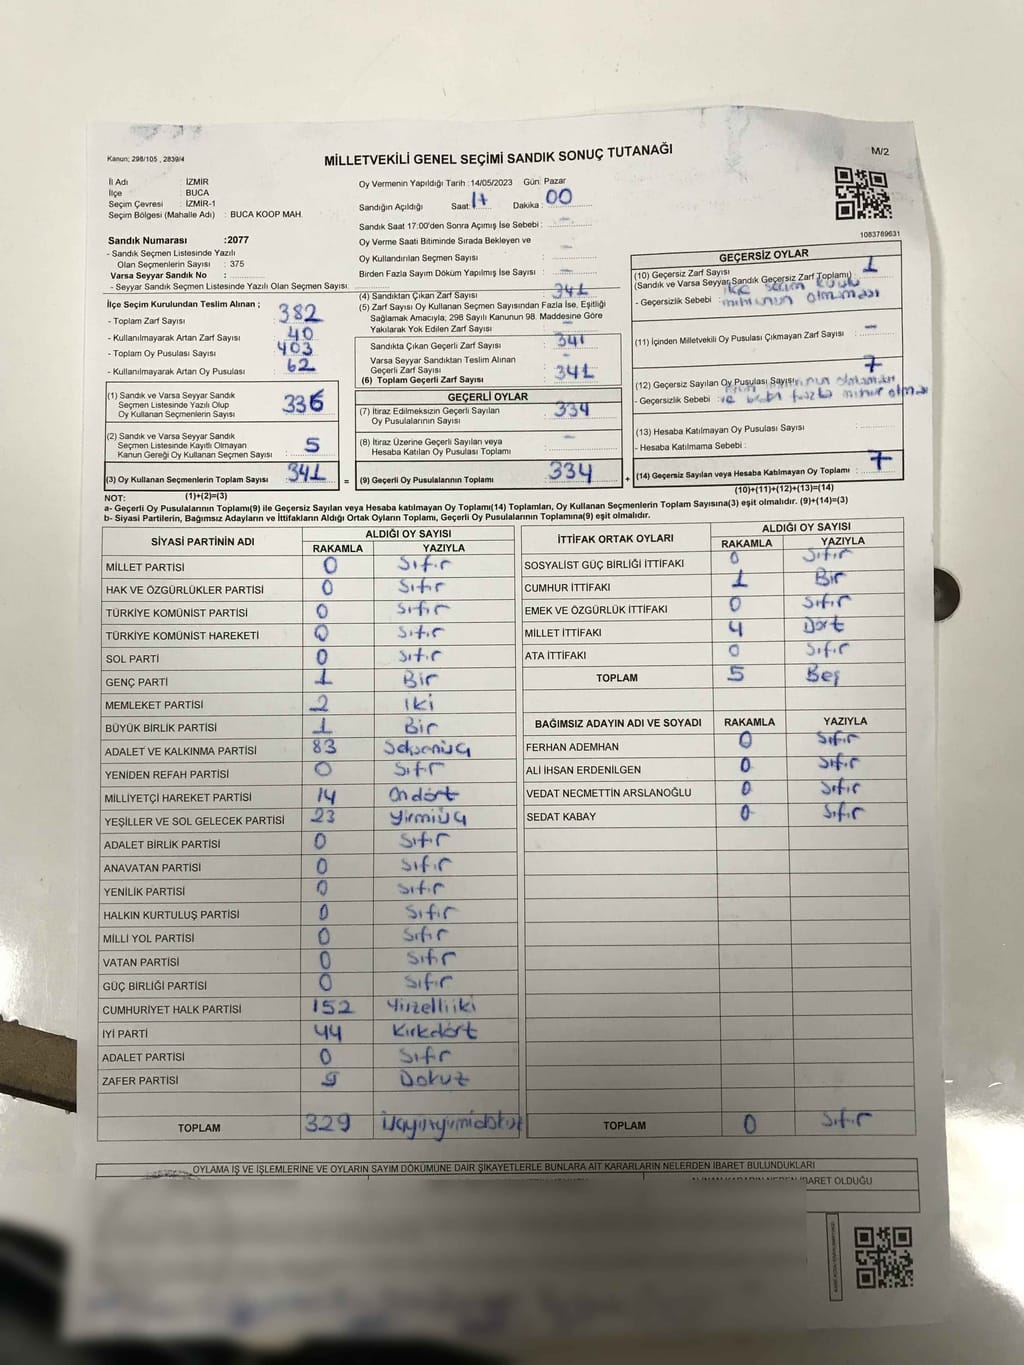 Kanun; 298/105 , 2839/4
MİLLETVEKİLİ GENEL SEÇİMİ SANDIK SONUÇ TUTANAĞI
M/2
İl Adı : İZMİR
İlçe : BUCA
Seçim Çevresi : İZMİR-1
Seçim Bölgesi (Mahalle Adı) : BUCA KOOP MAH.
Oy Vermenin Yapıldığı Tarih :14/05/2023 Gün: Pazar
Sandığın Açıldığı Saat: 17 Dakika : 00
Sandık Saat 17:00'den Sonra Açımış İse Sebebi : -
Oy Verme Saati Bitiminde Sırada Bekleyen ve
Oy Kullandırılan Seçmen Sayısı : -
Birden Fazla Sayım Döküm Yapılmış İse Sayısı : -
1083769631
Sandık Numarası :2077
- Sandık Seçmen Listesinde Yazılı
Olan Seçmenlerin Sayısı : 375
Varsa Seyyar Sandık No :
- Seyyar Sandık Seçmen Listesinde Yazılı Olan Seçmen Sayısı
İlçe Seçim Kurulundan Teslim Alınan ;
- Toplam Zarf Sayısı : 382
- Kullanılmayarak Artan Zarf Sayısı : 40
- Toplam Oy Pusulası Sayısı : 403
- Kullanılmayarak Artan Oy Pusulası : 62
(1) Sandık ve Varsa Seyyar Sandık
Seçmen Listesinde Yazılı Olup
Oy Kullanan Seçmenlerin Sayısı : 336
(2) Sandık ve Varsa Seyyar Sandık
Seçmen Listesinde Kayıtlı Olmayan
Kanun Gereği Oy Kullanan Seçmen Sayısı : 5
(3) Oy Kullanan Seçmenlerin Toplam Sayısı : 341
(4) Sandıktan Çıkan Zarf Sayısı : 341
(5) Zarf Sayısı Oy Kullanan Seçmen Sayısından Fazla İse, Eşitliği
Sağlamak Amacıyla; 298 Sayılı Kanunun 98. Maddesine Göre
Yakılarak Yok Edilen Zarf Sayısı : -
Sandıkta Çıkan Geçerli Zarf Sayısı : 341
Varsa Seyyar Sandıktan Teslim Alınan
Geçerli Zarf Sayısı : -
(6) Toplam Geçerli Zarf Sayısı : 341
GEÇERLİ OYLAR
(7) İtiraz Edilmeksizin Geçerli Sayılan
Oy Pusulalarının Sayısı : 334
(8) İtiraz Üzerine Geçerli Sayılan veya
Hesaba Katılan Oy Pusulası Toplamı : -
= (9) Geçerli Oy Pusulalarının Toplamı : 334
GEÇERSİZ OYLAR
(10) Geçersiz Zarf Sayısı
(Sandık ve Varsa Seyyar Sandık Geçersiz Zarf Toplamı) : 1
- Geçersizlik Sebebi : ilçe seçim kurulu
mührünün olmaması
(11) İçinden Milletvekili Oy Pusulası Çıkmayan Zarf Sayısı : -
(12) Geçersiz Sayılan Oy Pusulası Sayısı : 7
- Geçersizlik Sebebi : ve fazla mühür olması
(13) Hesaba Katılmayan Oy Pusulası Sayısı : -
- Hesaba Katılmama Sebebi :
+ (14) Geçersiz Sayılan veya Hesaba Katılmayan Oy Toplamı : 7
NOT: (1)+(2)=(3)
(10)+(11)+(12)+(13)=(14)
a- Geçerli Oy Pusulalarının Toplamı(9) ile Geçersiz Sayılan veya Hesaba katılmayan Oy Toplamı(14) Toplamları, Oy Kullanan Seçmenlerin Toplam Sayısına(3) eşit olmalıdır. (9)+(14)=(3)
b- Siyasi Partilerin, Bağımsız Adayların ve İttifakların Aldığı Ortak Oyların Toplamı, Geçerli Oy Pusulalarının Toplamına(9) eşit olmalıdır.
SİYASİ PARTİNİN ADI ALDIĞI OY SAYISI
RAKAMLA YAZIYLA
MİLLET PARTİSİ 0 Sıfır
HAK VE ÖZGÜRLÜKLER PARTİSİ 0 Sıfır
TÜRKİYE KOMÜNİST PARTİSİ 0 Sıfır
TÜRKİYE KOMÜNİST HAREKETİ 0 Sıfır
SOL PARTİ 0 Sıfır
GENÇ PARTİ 1 Bir
MEMLEKET PARTİSİ 2 İki
BÜYÜK BİRLİK PARTİSİ 1 Bir
ADALET VE KALKINMA PARTİSİ 83 Seksenüç
YENİDEN REFAH PARTİSİ 0 Sıfır
MİLLİYETÇİ HAREKET PARTİSİ 14 Ondört
YEŞİLLER VE SOL GELECEK PARTİSİ 23 Yirmiüç
ADALET BİRLİK PARTİSİ 0 Sıfır
ANAVATAN PARTİSİ 0 Sıfır
YENİLİK PARTİSİ 0 Sıfır
HALKIN KURTULUŞ PARTİSİ 0 Sıfır
MİLLİ YOL PARTİSİ 0 Sıfır
VATAN PARTİSİ 0 Sıfır
GÜÇ BİRLİĞİ PARTİSİ 0 Sıfır
CUMHURİYET HALK PARTİSİ 152 Yüzelliiki
İYİ PARTİ 44 Kırkdört
ADALET PARTİSİ 0 Sıfır
ZAFER PARTİSİ 9 Dokuz
TOPLAM 329 üçyüzyirmidokuz
İTTİFAK ORTAK OYLARI ALDIĞI OY SAYISI
RAKAMLA YAZIYLA
SOSYALİST GÜÇ BİRLİĞİ İTTİFAKI 0 Sıfır
CUMHUR İTTİFAKI 1 Bir
EMEK VE ÖZGÜRLÜK İTTİFAKI 0 Sıfır
MİLLET İTTİFAKI 4 Dört
ATA İTTİFAKI 0 Sıfır
TOPLAM 5 Beş
BAĞIMSIZ ADAYIN ADI VE SOYADI RAKAMLA YAZIYLA
FERHAN ADEMHAN 0 Sıfır
ALİ İHSAN ERDENİLGEN 0 Sıfır
VEDAT NECMETTİN ARSLANOĞLU 0 Sıfır
SEDAT KABAY 0 Sıfır
TOPLAM 0 Sıfır
OYLAMA İŞ VE İŞLEMLERİNE VE OYLARIN SAYIM DÖKÜMÜNE DAİR ŞİKAYETLERLE BUNLARA AİT KARARLARIN NELERDEN İBARET BULUNDUKLARI
ALINAN KARARIN NEDEN İBARET OLDUĞU